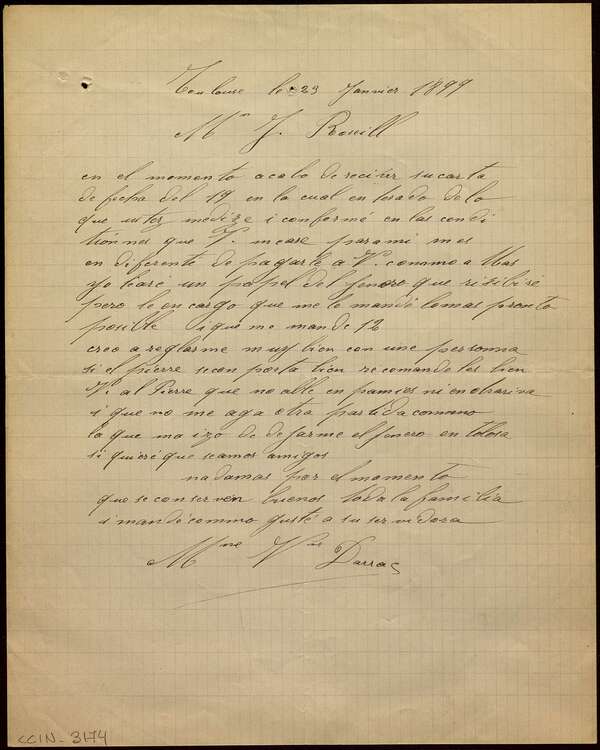 Toulouse le 23 Janvier 1899
Mr J. Rouill
en el momento acabo de recivir su carta
de fecha del 19 en la cual enterado de lo
que ustez medize i conformé en las condi
tiónnes que V. mease parami mes
en diferente de pagarle a V. commo a Mas
yo haré un papel del fenero que risibiré
pero le en cargo que me le mandé lomas pronto
posible i que me mande 12
creo a reglarme muy bien con une personna
si el pierre se con porta bien recomandeles bien
V. al Pierre que no able en pamies ni en
i que no me aga otra partida commo
la que ma izo de dejarme el fenero en Tolosa
si quieré que seamos amigos
nadamas por el momento
que se conserven buenos toda la familia
i mandé commo gusté a su servidora
Mme Vve Darras
CCIN-3174